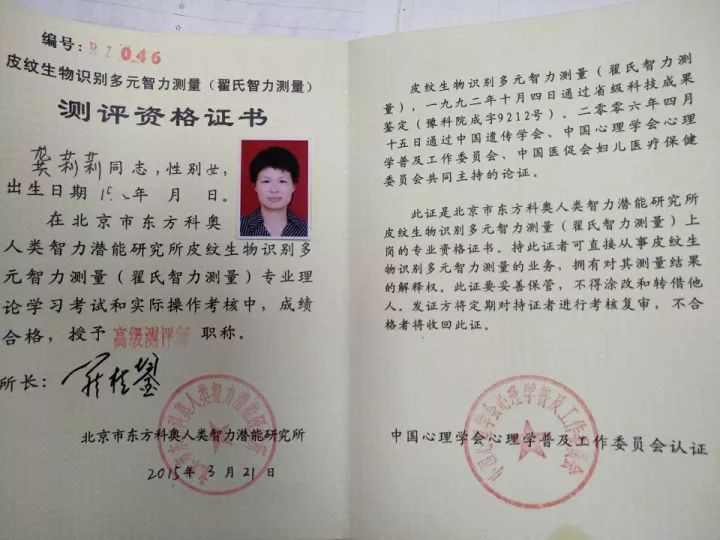 编号: 046
皮纹生物识别多元智力测量（翟氏智力测量）
测评资格证书
莉莉同志，性别女，
出生日期 年 月 日。
在北京市东方科奥
人类智力潜能研究所皮纹生物识别多
元智力测量（翟氏智力测量）专业理
论学习考试和实际操作考核中，成绩
合格，授予高级测评师职称。
所长：
北京市东方科奥人类智力潜能研究所
2015年3月21日
皮纹生物识别多元智力测量（翟氏智力测
量），一九九二年十月四日通过省级科技成果
鉴定（豫科院成字9212号）。二零零六年四月
十五日通过中国遗传学会、中国心理学会心理
学普及工作委员会、中国医促会妇儿医疗保健
委员会共同主持的论证。
此证是北京市东方科奥人类智力潜能研究所
皮纹生物识别多元智力测量（翟氏智力测量）上
岗的专业资格证书。持此证者可直接从事皮纹生
物识别多元智力测量的业务，拥有对其测量结果
的解释权。此证要妥善保管，不得涂改和转借他
人。发证方将定期对持证者进行考核复审，不合
格者将收回此证。
中国心理学会心理学普及工作委员会认证